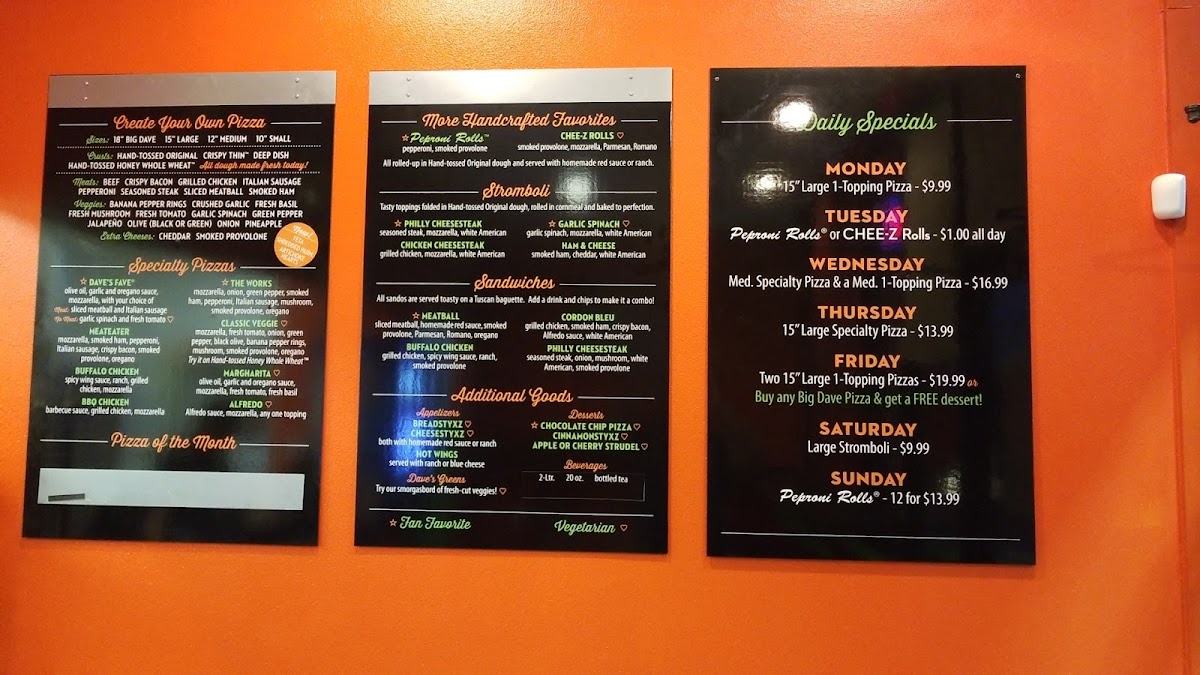 Create Your Own Pizza
Sizes: 18" BIG DAVE 15" LARGE 12" MEDIUM 10" SMALL
Crusts: HAND-TOSSED ORIGINAL CRISPY THIN™ DEEP DISH
HAND-TOSSED HONEY WHOLE WHEAT™ All dough made fresh today!
Meats: BEEF CRISPY BACON GRILLED CHICKEN ITALIAN SAUSAGE
PEPPERONI SEASONED STEAK SLICED MEATBALL SMOKED HAM
Veggies: BANANA PEPPER RINGS CRUSHED GARLIC FRESH BASIL
FRESH MUSHROOM FRESH TOMATO GARLIC SPINACH GREEN PEPPER
JALAPEÑO OLIVE (BLACK OR GREEN) ONION PINEAPPLE
Extra Cheeses: CHEDDAR SMOKED PROVOLONE
New!
FETA
SHREDDED PARM
ARTICHOKE
HEARTS
Specialty Pizzas
☆ DAVE'S FAVE®
olive oil, garlic and oregano sauce,
mozzarella, with your choice of
Meat: sliced meatball and Italian sausage
No Meat: garlic spinach and fresh tomato ♡
MEATEATER
mozzarella, smoked ham, pepperoni,
Italian sausage, crispy bacon, smoked
provolone, oregano
BUFFALO CHICKEN
spicy wing sauce, ranch, grilled
chicken, mozzarella
BBQ CHICKEN
barbecue sauce, grilled chicken, mozzarella
☆ THE WORKS
mozzarella, onion, green pepper, smoked
ham, pepperoni, Italian sausage, mushroom,
smoked provolone, oregano
CLASSIC VEGGIE ♡
mozzarella, fresh tomato, onion, green
pepper, black olive, banana pepper rings,
mushroom, smoked provolone, oregano
Try it on Hand-tossed Honey Whole Wheat™
MARGHARITA ♡
olive oil, garlic and oregano sauce,
mozzarella, fresh tomato, fresh basil
ALFREDO ♡
Alfredo sauce, mozzarella, any one topping
Pizza of the Month
More Handcrafted Favorites
☆ Peproni Rolls™
pepperoni, smoked provolone
CHEE-Z ROLLS ♡
smoked provolone, mozzarella, Parmesan, Romano
All rolled-up in Hand-tossed Original dough and served with homemade red sauce or ranch.
Stromboli
Tasty toppings folded in Hand-tossed Original dough, rolled in cornmeal and baked to perfection.
☆ PHILLY CHEESESTEAK
seasoned steak, mozzarella, white American
CHICKEN CHEESESTEAK
grilled chicken, mozzarella, white American
☆ GARLIC SPINACH ♡
garlic spinach, mozzarella, white American
HAM & CHEESE
smoked ham, cheddar, white American
Sandwiches
All sandos are served toasty on a Tuscan baguette. Add a drink and chips to make it a combo!
☆ MEATBALL
sliced meatball, homemade red sauce, smoked
provolone, Parmesan, Romano, oregano
BUFFALO CHICKEN
grilled chicken, spicy wing sauce, ranch,
smoked provolone
CORDON BLEU
grilled chicken, smoked ham, crispy bacon,
Alfredo sauce, white American
PHILLY CHEESESTEAK
seasoned steak, onion, mushroom, white
American, smoked provolone
Additional Goods
Appetizers
BREADSTYXZ ♡
CHEESESTYXZ ♡
both with homemade red sauce or ranch
HOT WINGS
served with ranch or blue cheese
Dave's Greens
Try our smorgasbord of fresh-cut veggies! ♡
Desserts
☆ CHOCOLATE CHIP PIZZA ♡
CINNAMONSTYXZ ♡
APPLE OR CHERRY STRUDEL ♡
Beverages
2-Ltr. 20 oz. bottled tea
☆ Fan Favorite
Vegetarian ♡
Daily Specials
MONDAY
15" Large 1-Topping Pizza - $9.99
TUESDAY
Peproni Rolls® or CHEE-Z Rolls - $1.00 all day
WEDNESDAY
Med. Specialty Pizza & a Med. 1-Topping Pizza - $16.99
THURSDAY
15" Large Specialty Pizza - $13.99
FRIDAY
Two 15" Large 1-Topping Pizzas - $19.99 or
Buy any Big Dave Pizza & get a FREE dessert!
SATURDAY
Large Stromboli - $9.99
SUNDAY
Peproni Rolls® - 12 for $13.99